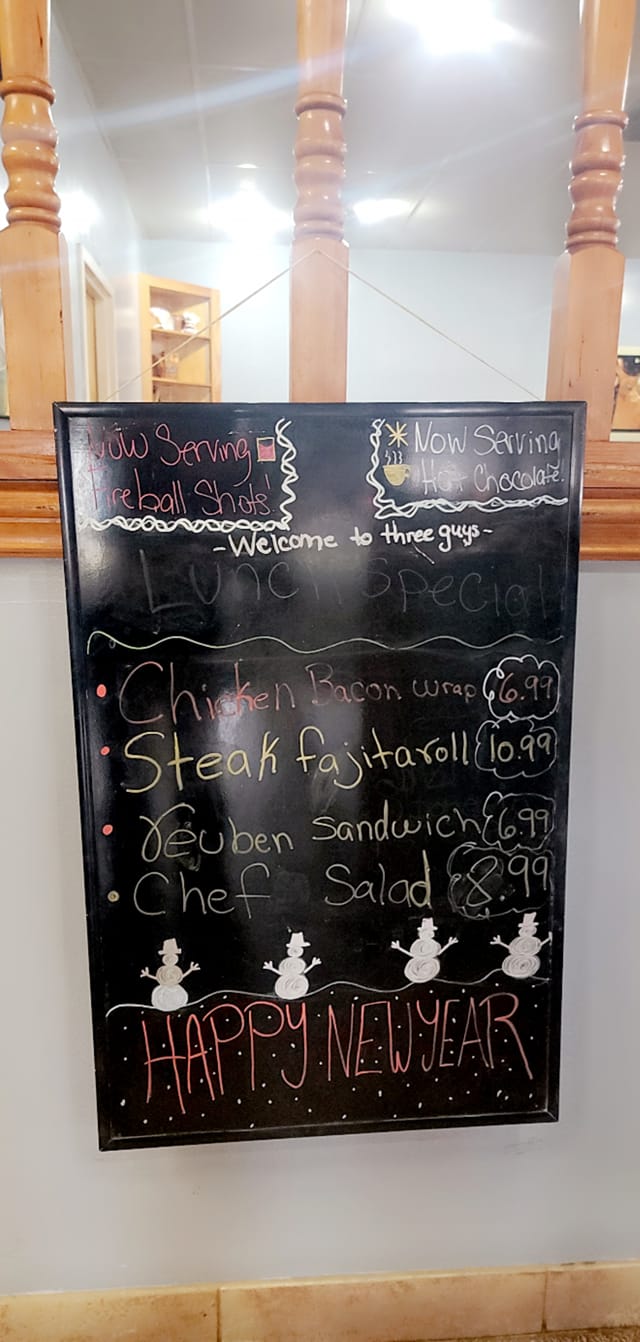 Now Serving
Fireball Shots!
Now Serving
Hot Chocolate!
-Welcome to three guys-
Lunch Special
Chicken Bacon wrap 6.99
Steak fajita roll 10.99
reuben sandwich 6.99
Chef Salad 8.99
HAPPY NEW YEAR